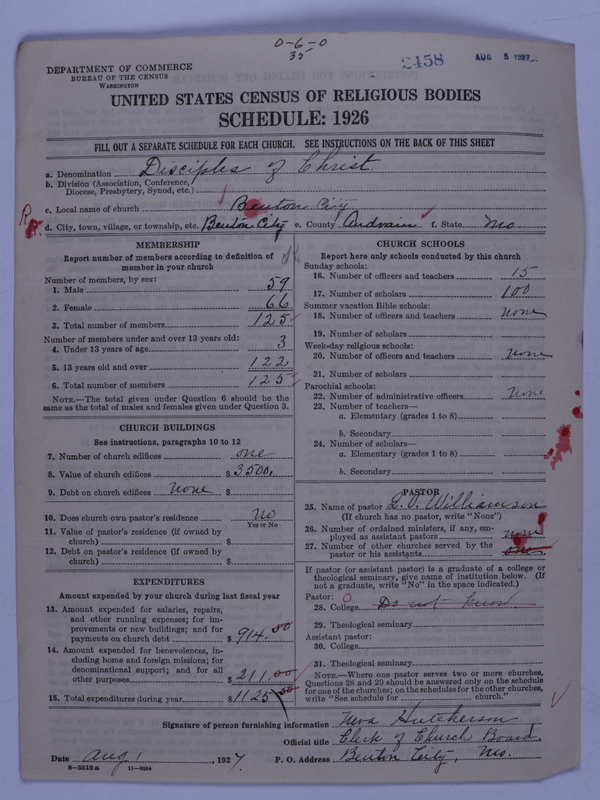 0-6-0
35
2458
AUG 5 1927
DEPARTMENT OF COMMERCE
BUREAU OF THE CENSUS
WASHINGTON
UNITED STATES CENSUS OF RELIGIOUS BODIES
SCHEDULE: 1926
FILL OUT A SEPARATE SCHEDULE FOR EACH CHURCH. SEE INSTRUCTIONS ON THE BACK OF THIS SHEET
a. Denomination Disciples of Christ
b. Division (Association, Conference, Diocese, Presbytery, Synod, etc.)
c. Local name of church Benton City
d. City, town, village, or township, etc. Benton City e. County Audrain f. State Mo
MEMBERSHIP
Report number of members according to definition of
member in your church
Number of members, by sex:
1. Male 59
2. Female 66
3. Total number of members 125
Number of members under and over 13 years old:
4. Under 13 years of age 3
5. 13 years old and over 122
6. Total number of members 125
NOTE.—The total given under Question 6 should be
same as the total of males and females given under Question 3.
CHURCH BUILDINGS
See instructions, paragraphs 10 to 12
7. Number of church edifices one
8. Value of church edifices $3500.
9. Debt on church edifices none $
10. Does church own pastor's residence No
Yes or No
11. Value of pastor's residence (if owned by
church) $
12. Debt on pastor's residence (if owned by
church) $
EXPENDITURES
Amount expended by your church during last fiscal year
13. Amount expended for salaries, repairs,
and other running expenses; for im-
provements or new buildings; and for
payments on church debt $914.50
14. Amount expended for benevolences, in-
cluding home and foreign missions; for
denominational support; and for all
other purposes $211.00
15. Total expenditures during year $1125.50
CHURCH SCHOOLS
Report here only schools conducted by this church
Sunday schools:
16. Number of officers and teachers 15
17. Number of scholars 100
Summer vacation Bible schools:
18. Number of officers and teachers none
19. Number of scholars
Week-day religious schools:
20. Number of officers and teachers none
21. Number of scholars
Parochial schools:
22. Number of administrative officers none
23. Number of teachers—
a. Elementary (grades 1 to 8)
b. Secondary
24. Number of scholars—
a. Elementary (grades 1 to 8)
b. Secondary
PASTOR
25. Name of pastor Williamson
(If church has no pastor, write "None")
26. Number of ordained ministers, if any, em-
ployed as assistant pastors none
27. Number of other churches served by the
pastor or his assistants
If pastor (or assistant pastor) is a graduate of a college or
theological seminary, give name of institution below. (If
not a graduate, write "No" in the space indicated.)
Pastor:
28. College Do not know
29. Theological seminary
Assistant pastor:
30. College
31. Theological seminary
NOTE.—Where one pastor serves two or more churches,
Questions 28 and 29 should be answered only on the schedule
for one of the churches; on the schedules for the other churches,
write "See schedule for church."
Signature of person furnishing information Neva Hutcherson
Official title Clerk of Church Board
Date Aug 1, 1927. P. O. Address Benton City, Mo.
8-5518a 11-9264